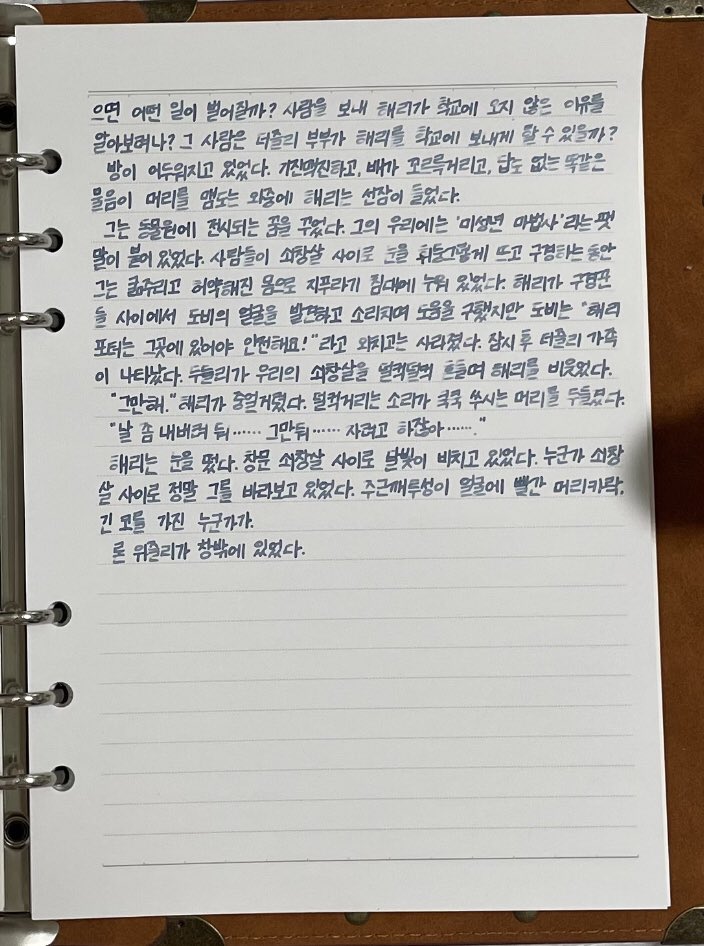 으면 어떤 일이 벌어질까? 사람을 보내 해리가 학교에 오지 않은 이유를
알아보려나? 그 사람은 더즐리 부부가 해리를 학교에 보내게 할 수 있을까?
방이 어두워지고 있었다. 기진맥진하고, 배가 꼬르륵거리고, 답도 없는 똑같은
물음이 머리를 맴도는 와중에 해리는 선잠이 들었다.
그는 동물원에 전시되는 꿈을 꾸었다. 그의 우리에는 '미성년 마법사'라는 팻
말이 붙어 있었다. 사람들이 쇠창살 사이로 눈을 휘둥그렇게 뜨고 구경하는 동안
그는 굶주리고 허약해진 몸으로 지푸라기 침대에 누워 있었다. 해리가 구경꾼
들 사이에서 도비의 얼굴을 발견하고 소리치며 도움을 구했지만 도비는 "해리
포터는 그곳에 있어야 안전해요!"라고 외치고는 사라졌다. 잠시 후 더즐리 가족
이 나타났다. 두들리가 우리의 쇠창살을 덜컥덜컥 흔들며 해리를 비웃었다.
"그만해." 해리가 중얼거렸다. 덜컥거리는 소리가 쿡쿡 쑤시는 머리를 두들겼다.
"날 좀 내버려 둬…… 그만둬…… 자려고 하잖아……."
해리는 눈을 떴다. 창문 쇠창살 사이로 달빛이 비치고 있었다. 누군가 쇠창
살 사이로 정말 그를 바라보고 있었다. 주근깨투성이 얼굴에 빨간 머리카락,
긴 코를 가진 누군가가.
론 위즐리가 창밖에 있었다.